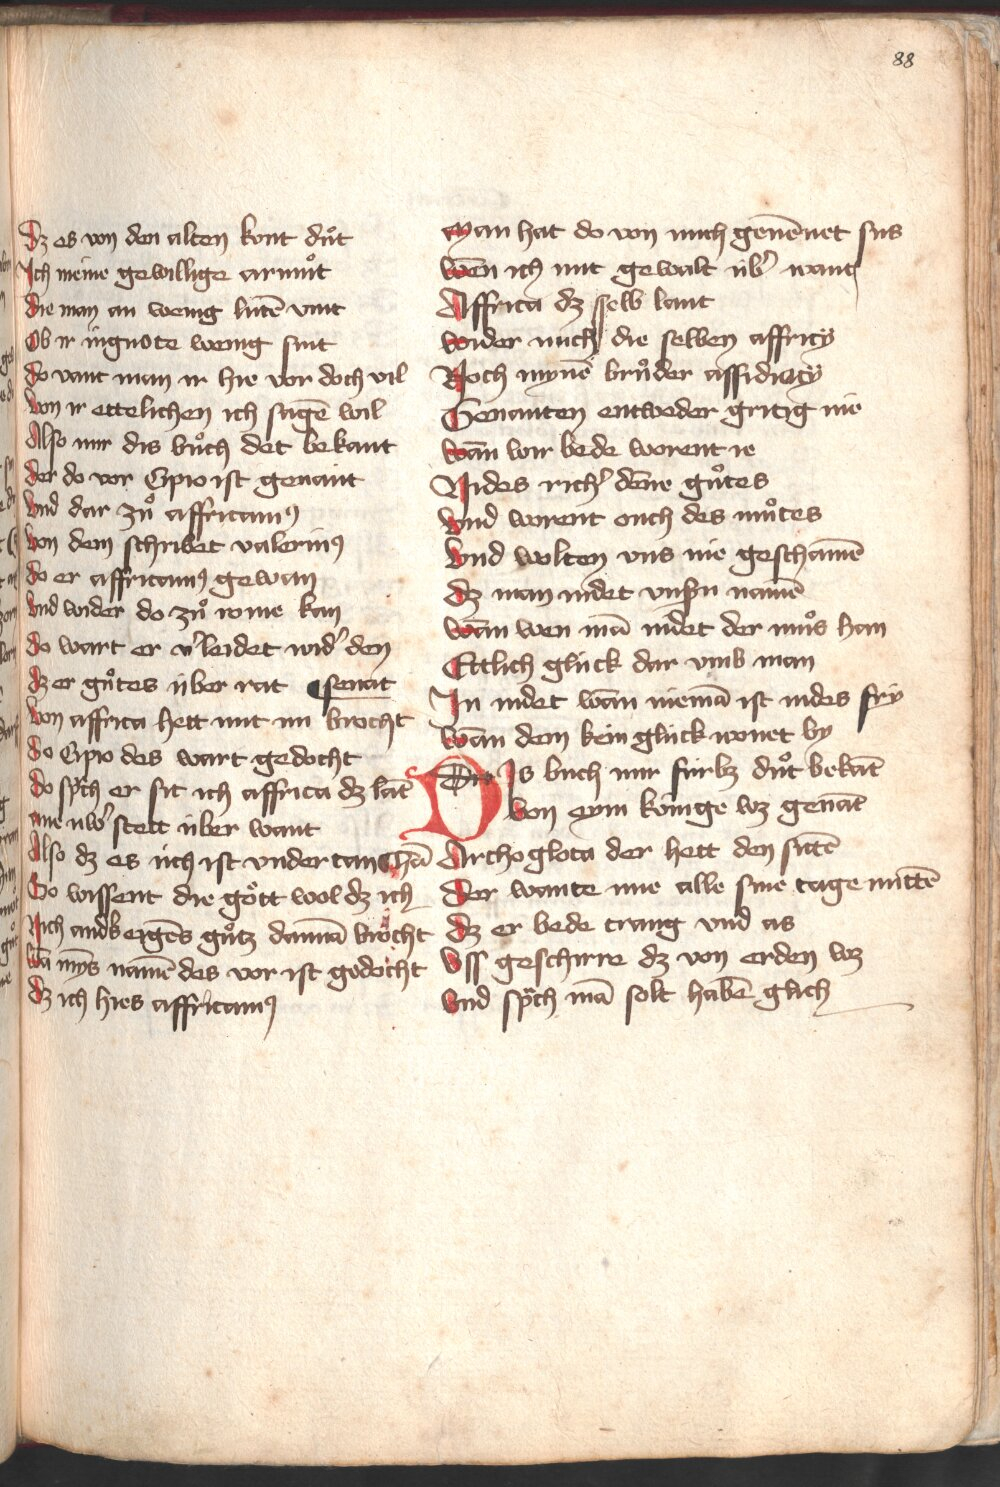 88
Dz es von den alten kont důt
Ich meine gewillige armůt
Die man an wenig lutē vint
Ob ir ingnote wenig sint
Do vant man ir hie vor doch vil
Von ir ettelichen ich sagē wil
Also mir dis bůch det bekant
Der do vor Cipio ist genant
Vnd dar zů affricanꝰ
Von dem schribet valeriuꝰ
Do er affricanꝰ gewan
Vnd wider do zů rome kan
Do wart er v'leidet wid' den
Dz er gůtes über rat senat
Von affrica hett mit im brocht
Do Cipio des wart gedocht
Do sp̄ch er sit ich affrica dz lāt
über want
Also dz es üch ist vndertan hā
So wissent die gött wol dz ich
Nich gůtz dannā brocht
nāmē des vor ist gedocht
Dz ich hies affricanꝰ
Man hat do von mich genēnet sus
Wēn ich mit gewalt üb' want
Affrica dz selb lant
Wider mich die selben affricy
Noch mynē brůder
Genanten entweder gritig nie
Wān wir bede worent ie
Nides rich' dēne gůtes
Vnd worent ouch des můtes
Vnd wolten vns nie geschamē
Dz man nidet vnsn namē
Wān wen mā nidet der můs han
Ettlich glück dar vmb man
In nidet wān niemā ist nides fry
Wān dem kein glück wonet by
DIs buch mir fürbz důt bekāt
Von eym könige wz genāt
Archogloca der hett den sittē
Der wante nie alle sine tage mittē
Dz er bede trang vnd as
Vss geschirre dz von erden wz
Vnd sp̄ch mā solt habē glich